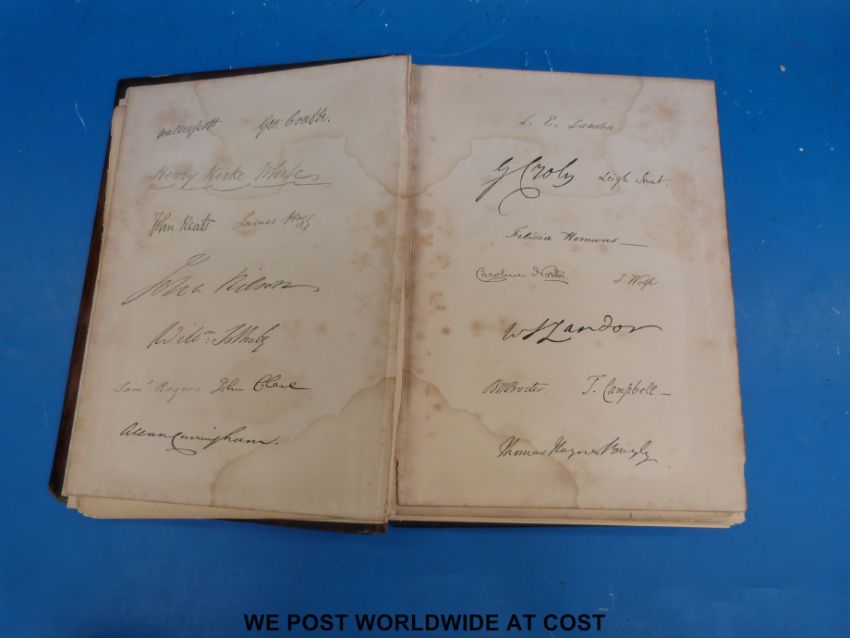 Walter Scott Geo Crabbe.
Henry Kirke White
John Keats James Hogg
John Wilson
Sam^l Rogers John Clare
Allan Cunningham.
L. E. Landon
G Croly Leigh Hunt.
Felicia Hemans —
Caroline Norton. J. Wolfe
W S Landor
B W Procter. T. Campbell —
Thomas Haynes Bayly
WE POST WORLDWIDE AT COST